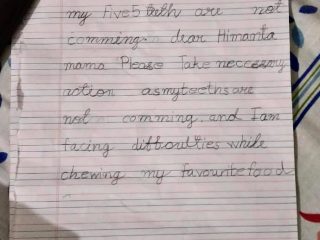 my Five5 teeth are not
comming. dear Himanta
mama Please Take neccessy
action asmyteethsare
not comming. and I am
facing difficulties while
chewing my favourite food